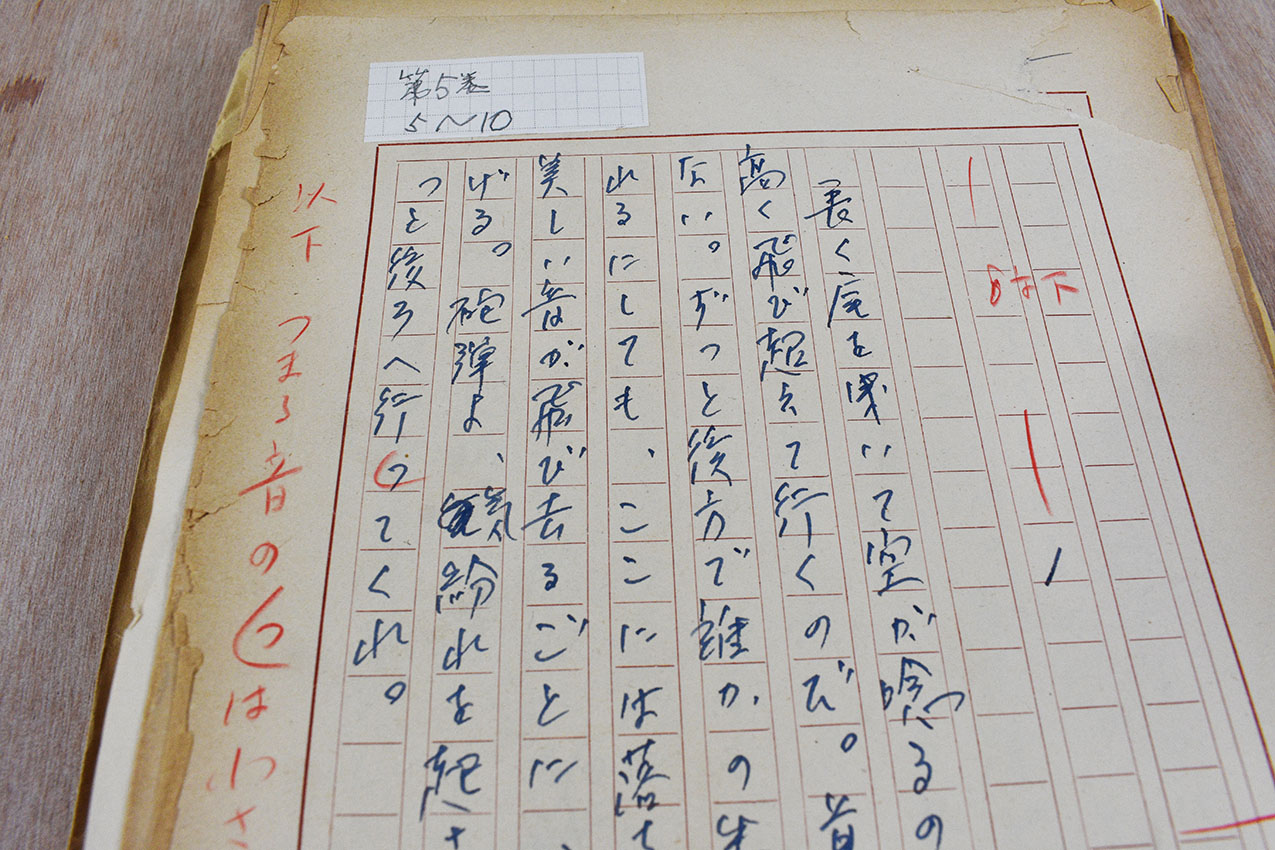 第5巻
5〜10
長く尾を曳いて空が唸るの
高く飛び超えて行くのだ。
ない。ずつと後方で誰かの生
れるにしても、ここには落ち
美しい音が飛び去るごとに、
げる。砲弾よ、気紛れを起さ
つと後ろへ行つてくれ。
以下 つまる音のつは小さ